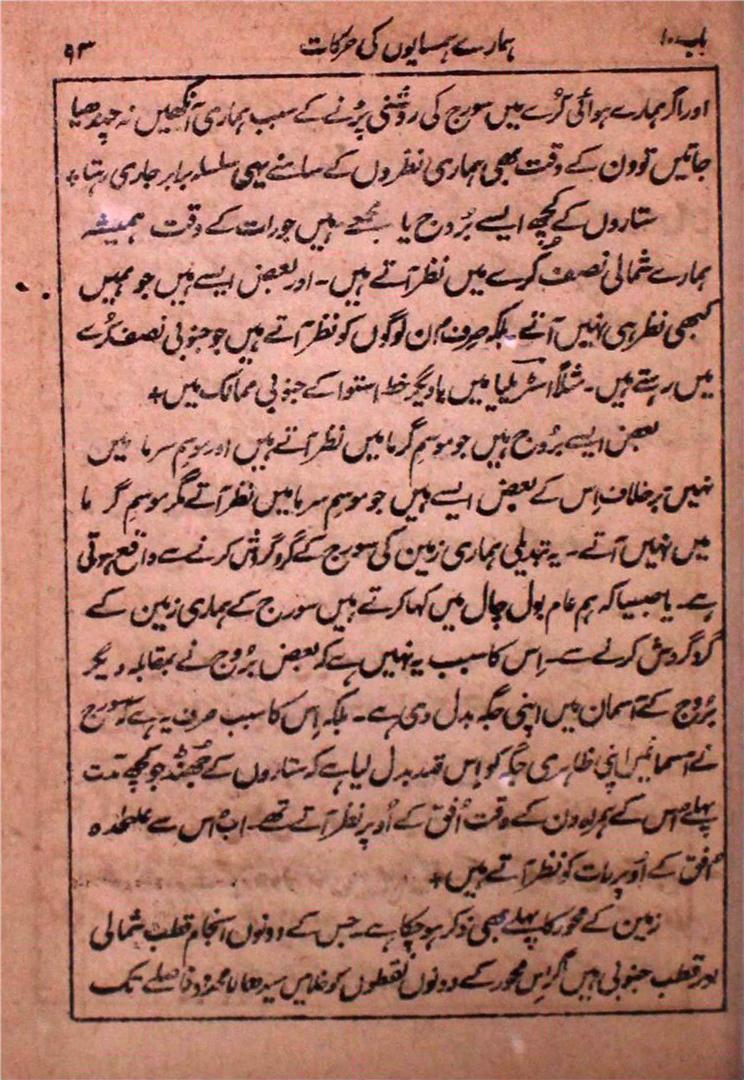 باب ۱۰ ہمارے ہمسایوں کی حرکات ۹۳
اور اگر ہمارے ہوائی کُرے میں سورج کی روشنی پڑنے کے سبب ہماری آنکھیں نہ چندھیا
جاتیں تو دن کے وقت بھی ہماری نظروں کے سامنے یہی سلسلہ برابر جاری رہتا +
ستاروں کے کچھ ایسے بُروج یا مجمعے ہیں جو رات کے وقت ہمیشہ
ہمارے شمالی نصف کُرے میں نظر آتے ہیں۔ اور بعض ایسے ہیں جو ہمیں
کبھی نظر ہی نہیں آتے۔ بلکہ صرف اُن لوگوں کو نظر آتے ہیں جو جنوبی نصف کُرے
میں رہتے ہیں۔ مثلاً اسٹریلیا میں یا دیگر خط استوا کے جنوبی ممالک میں +
بعض ایسے بُروج ہیں جو موسمِ گرما میں نظر آتے ہیں اور موسمِ سرما میں
نہیں برخلاف اِس کے بعض ایسے ہیں جو موسمِ سرما میں نظر آتے مگر موسمِ گرما
میں نہیں آتے۔ یہ تبدیلی ہماری زمین کی سورج کے گرد گردش کرنے سے واقع ہوتی
ہے۔ یا جیسا کہ ہم عام بول چال میں کہا کرتے ہیں سورج کے ہماری زمین کے
گرد گردش کرنے سے۔ اِس کا سبب یہ نہیں ہے کہ بعض بُروج نے بمقابلہ دیگر
بُروج کے آسمان میں اپنی جگہ بدل دی ہے۔ بلکہ اِس کا سبب صرف یہ ہے کہ سورج
نے آسمان میں اپنی ظاہری جگہ کو اِس قدر بدل لیا ہے کہ ستاروں کے جھنڈ جو کچھ مدت
پہلے اُس کے ہمراہ دن کے وقت اُفق کے اُوپر نظر آتے تھے۔ اب اُس سے علیحدہ
اُفق کے اُوپر رات کو نظر آتے ہیں +
زمین کے محور کا پہلے بھی ذکر ہو چکا ہے۔ جس کے دونوں انجام قطب شمالی
اور قطب جنوبی ہیں اگر اِس محور کے دونوں نقطوں کو خلا میں سیدھا نا محدود فاصلے تک